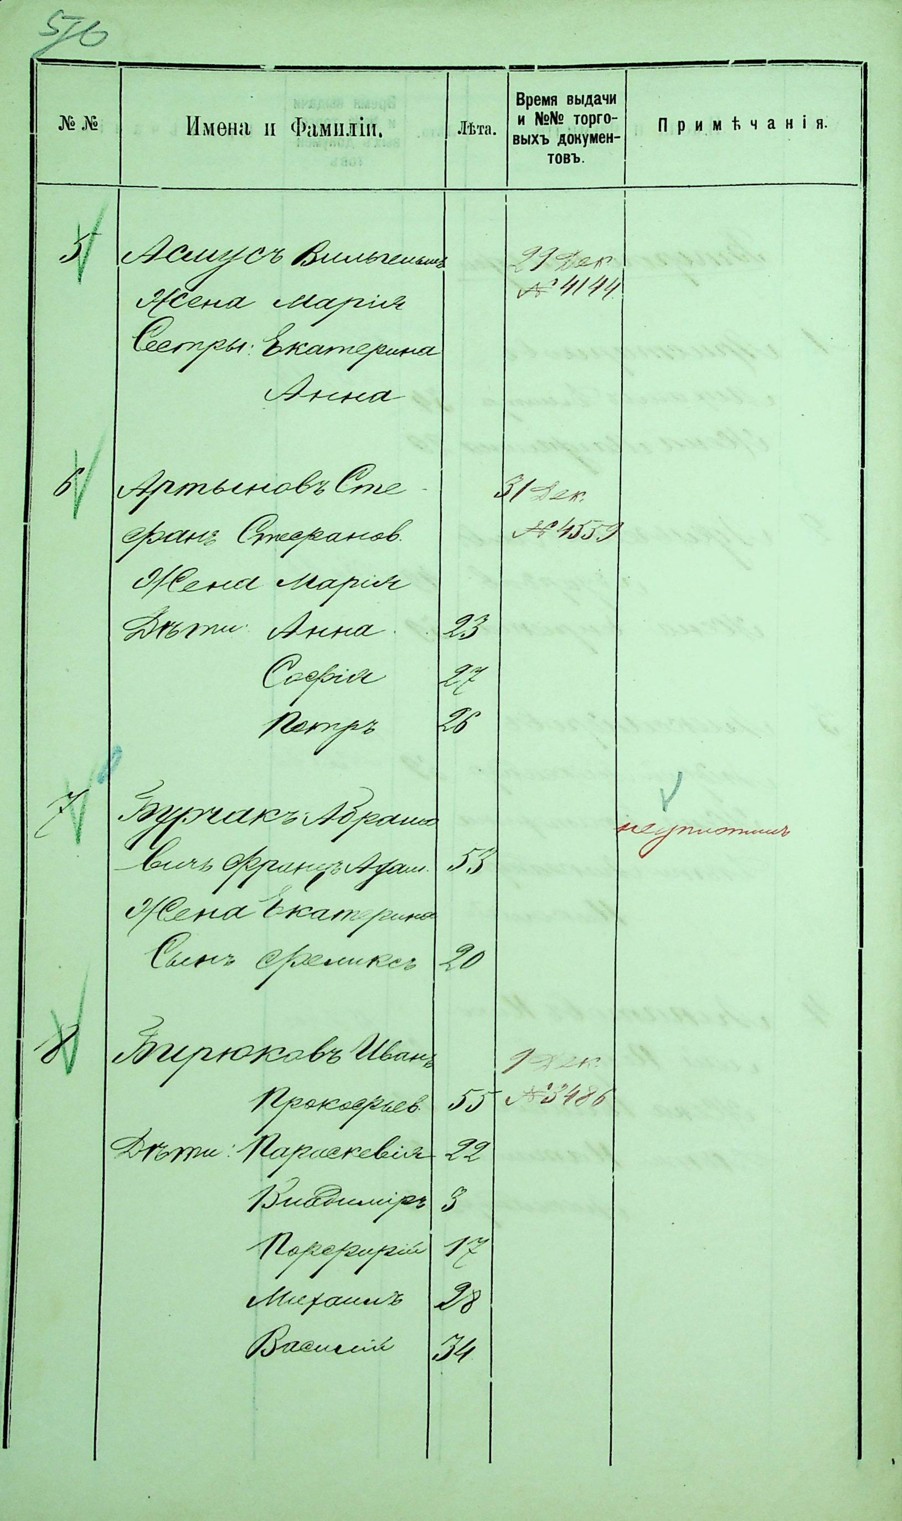 576
№№
Имена и Фамиліи.
Лѣта.
Время выдачи
и №№ торго-
выхъ докумен-
товъ.
Примѣчанія.
5 Асмусъ Вильгельмъ 29 Дек
Жена Марія № 4144
Сестры: Екатерина
Анна
6 Артыновъ Сте- 31 Дек
фанъ Стефанов. № 4559
Жена Марія
Дѣти: Анна 23
Софія 27
Петръ 26
7 Буржакъ-Абрамо
вичъ Францъ Адам. 53
Жена Екатерина
Сынъ Феликсъ 20
8 Бирюковъ Иванъ 9 Дек
Прокофьев. 55 № 3486
Дѣти: Параскевія 22
Владиміръ 3
Порфирій 17
Михаилъ 28
Василій 34